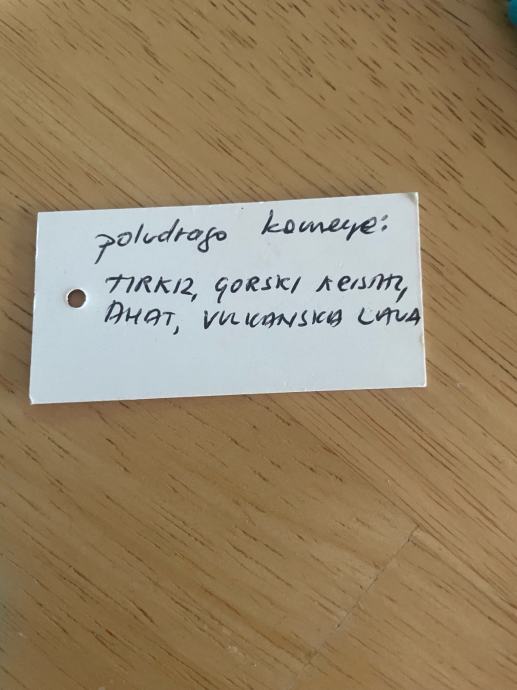 poludrago kamenje:
TIRKIZ, GORSKI KRISTAL,
AHAT, VULKANSKA LAVA